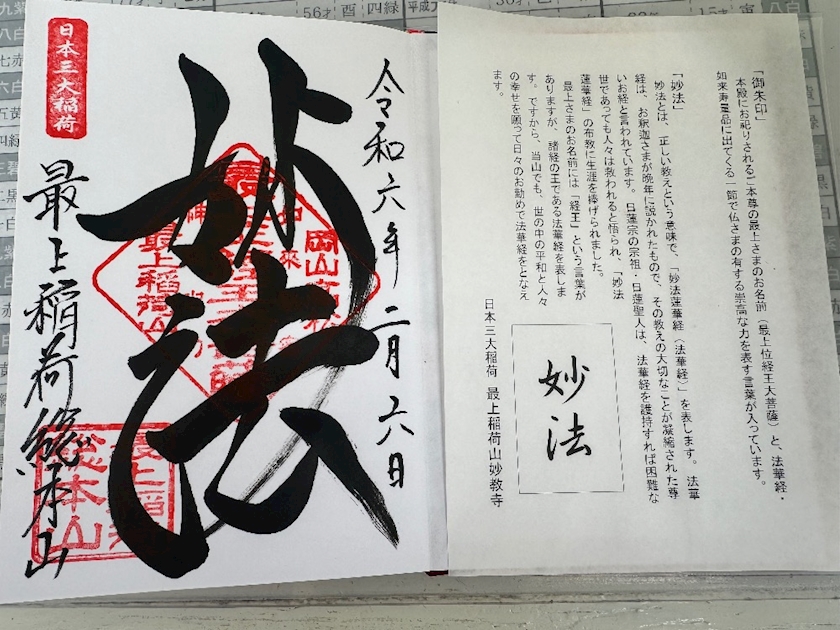 「御朱印」
本殿にお祀りされるご本尊の最上さまのお名前（最上位経王大菩薩）と、法華経・
如来寿量品に出てくる一節で仏さまの有する崇高な力を表す言葉が入っています。
「妙法」
妙法とは、正しい教えという意味で、「妙法蓮華経（法華経）」を表します。法華
経は、お釈迦さまが晩年に説かれたもので、その教えの大切なことが凝縮された尊
いお経と言われています。日蓮宗の宗祖・日蓮聖人は、法華経を護持すれば困難な
世であっても人々は救われると悟られ、「妙法
蓮華経」の布教に生涯を捧げられました。
最上さまのお名前には「経王」という言葉が
ありますが、諸経の王である法華経を表しま
す。ですから、当山でも、世の中の平和と人々
の幸せを願って日々のお勤めで法華経をとなえ
ます。
妙法
日本三大稲荷 最上稲荷山妙教寺
令和六年二月六日
妙法
岡山
最上稲荷山
日本三大稲荷
最上稲荷総本山
最上稲荷
総本山
56才
酉
四緑
15才
寅